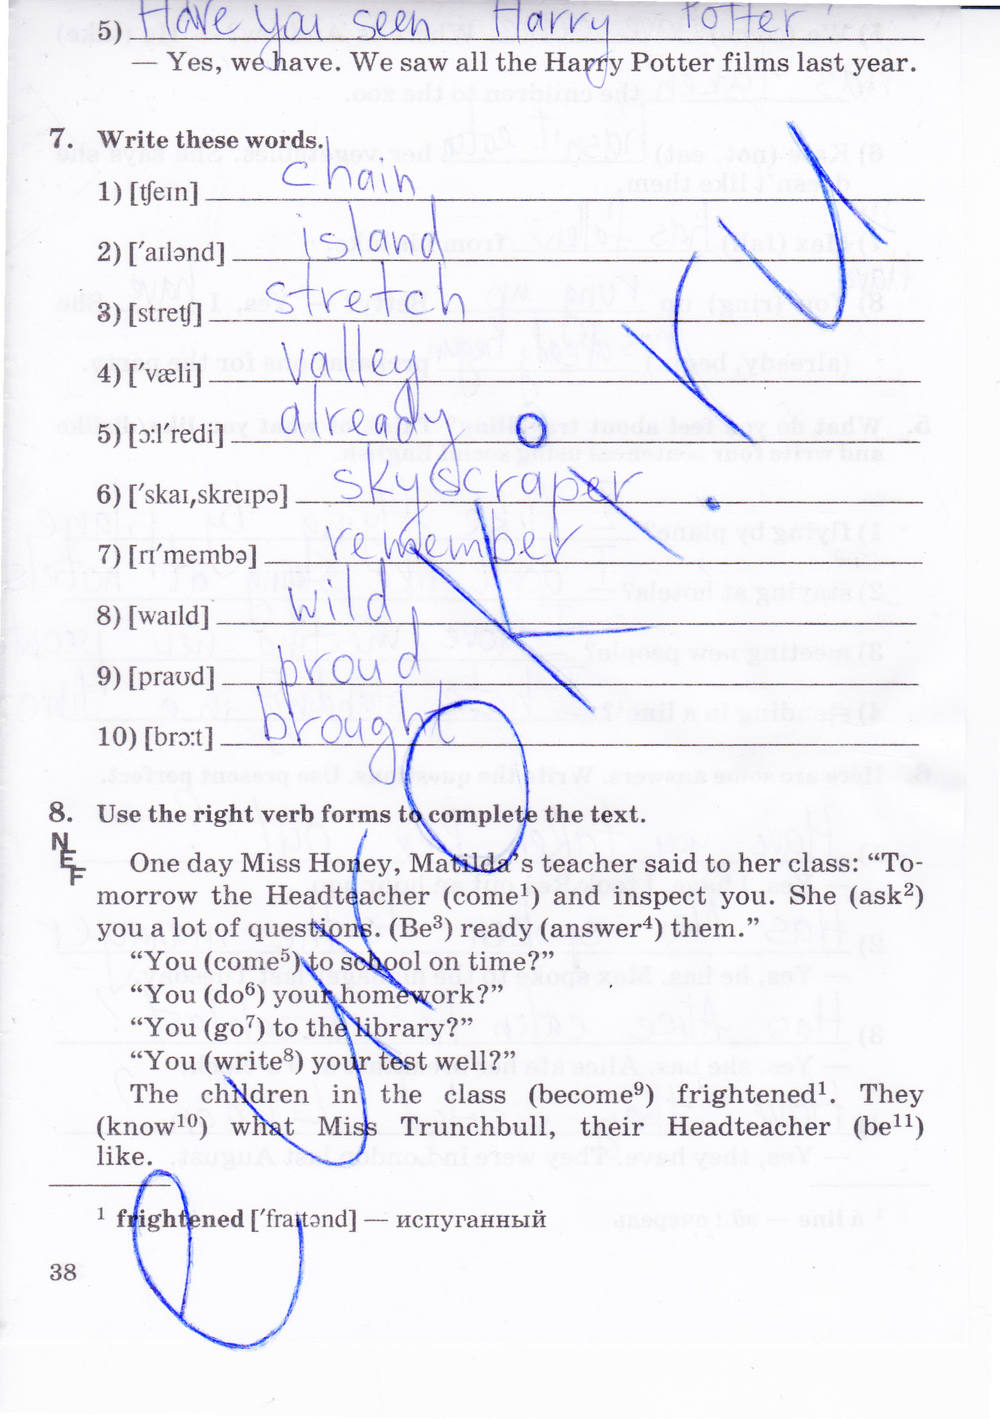 5) Have you seen Harry Potter?
— Yes, we have. We saw all the Harry Potter films last year.
7. Write these words.
1) [tʃeɪn] chain
2) [ˈaɪlənd] island
3) [stretʃ] stretch
4) [ˈvæli] valley
5) [ɔːlˈredi] already
6) [ˈskaɪˌskreɪpə] skyscraper
7) [rɪˈmembə] remember
8) [waɪld] wild
9) [praʊd] proud
10) [brɔːt] brought
8. Use the right verb forms to complete the text.
NEF
One day Miss Honey, Matilda's teacher said to her class: “To-
morrow the Headteacher (come¹) and inspect you. She (ask²)
you a lot of questions. (Be³) ready (answer⁴) them.”
“You (come⁵) to school on time?”
“You (do⁶) your homework?”
“You (go⁷) to the library?”
“You (write⁸) your test well?”
The children in the class (become⁹) frightened¹. They
(know¹⁰) what Miss Trunchbull, their Headteacher (be¹¹)
like.
¹ frightened [ˈfraɪtənd] — испуганный
38